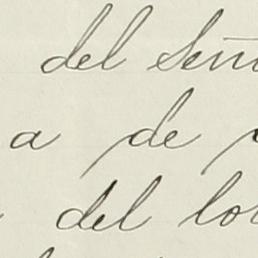 del Señ
a de
del lo